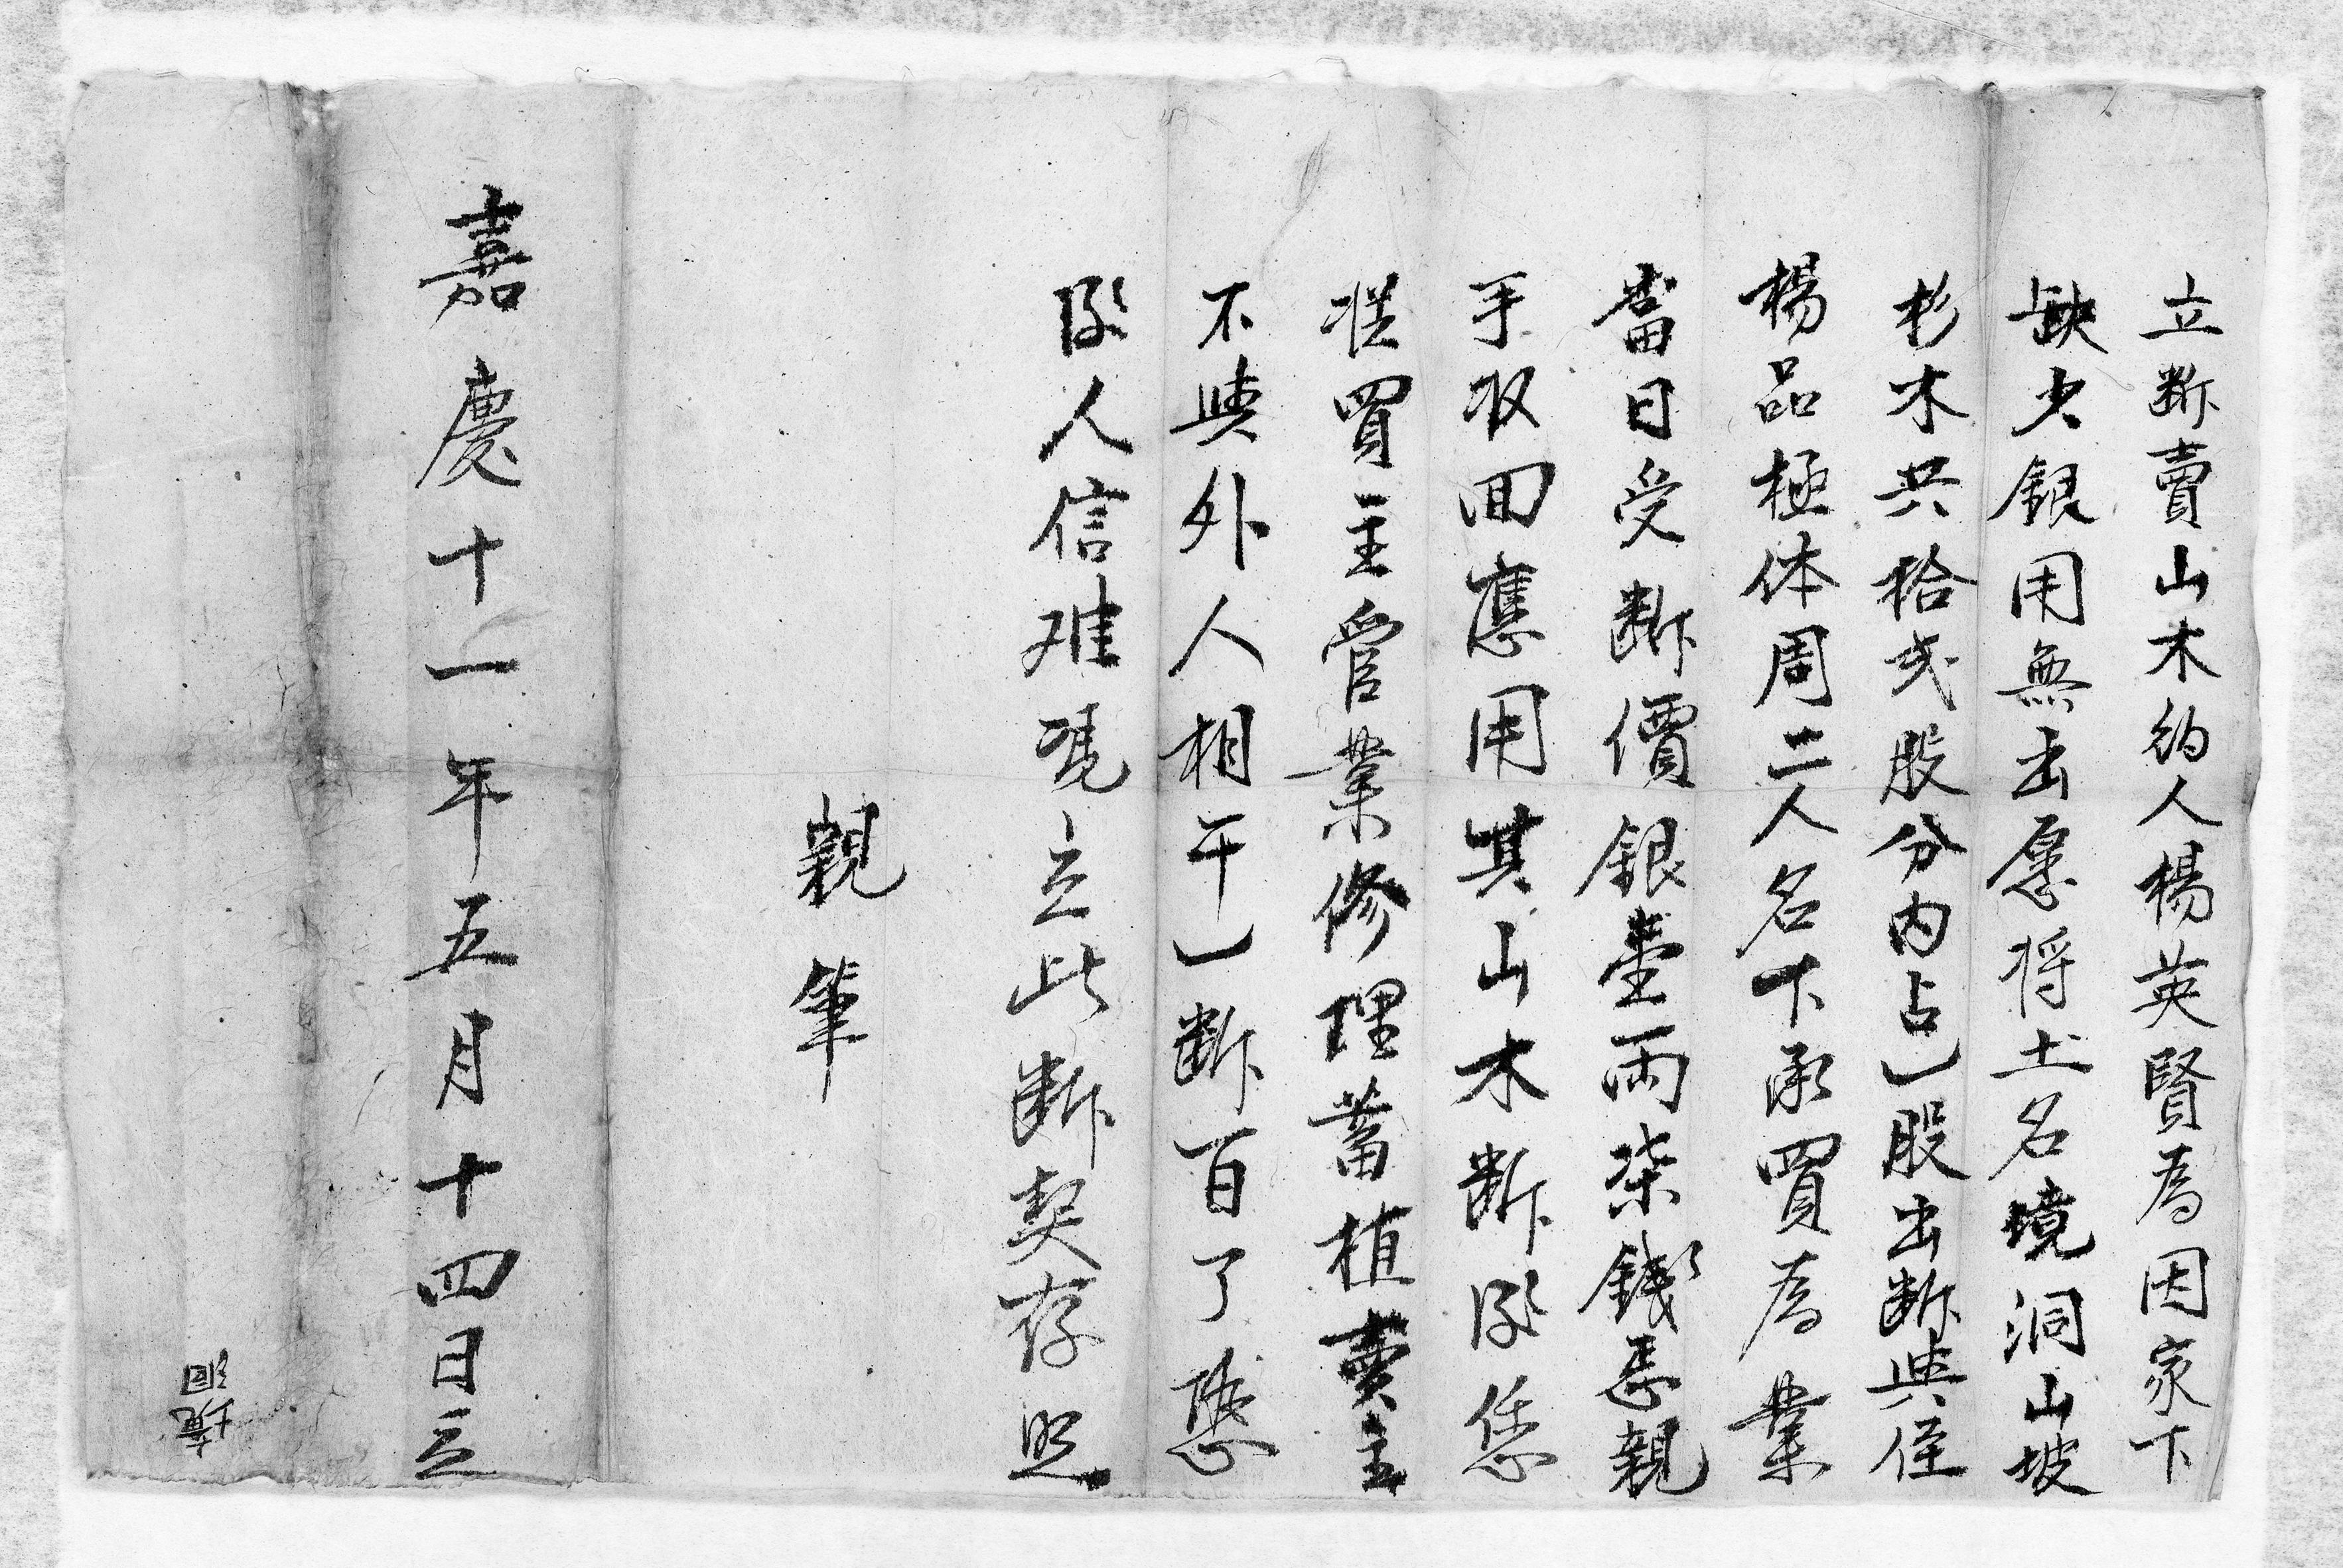 立断賣山木約人楊英賢為因家下
缺少銀用無出愿将土名境洞山坡
杉木共拾弍股分内占乚股出断與侄
楊品極体周二人名下承買為業
當日受断價銀壹両柒錢恁親
手收回應用其山木断後恁
從買主管業修理蓄植賣主
不與外人相干乚断百了恐
後人信难凴立此断契存照
親筆
嘉慶十一年五月十四日立
境洞